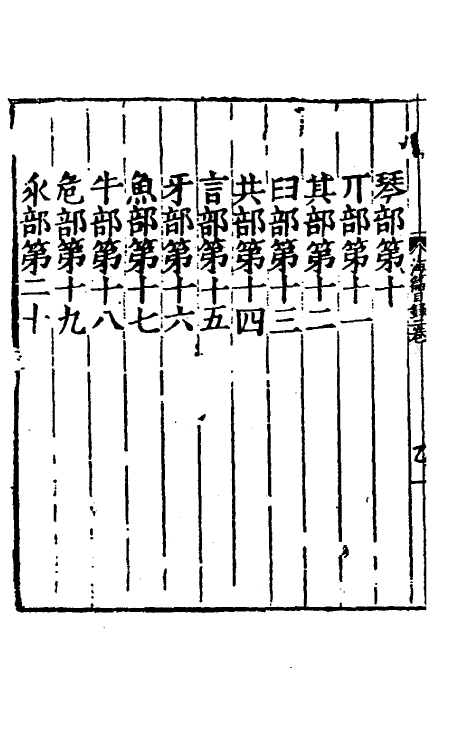 琴部第十
丌部第十一
其部第十二
𦥑部第十三
共部第十四
言部第十五
牙部第十六
魚部第十七
牛部第十八
危部第十九
永部第二十
海篇目錄二卷